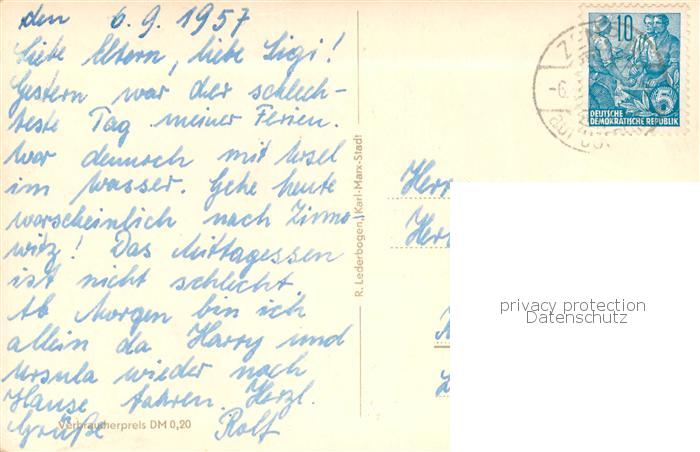 den 6.9.1957
Liebe Eltern, liebe Sigi!
Gestern war der schlech-
teste Tag meiner Ferien.
War dennoch mit Ursel
im Wasser. Gehe heute
warscheinlich nach Zinno-
witz! Das Mittagessen
ist nicht schlecht.
Ab Morgen bin ich
allein da Harry und
Ursula wieder nach
Hause fahren. Herzl.
Grüße Rolf
Verbraucherpreis DM 0,20
R. Lederbogen, Karl-Marx-Stadt
10
5
DEUTSCHE
DEMOKRATISCHE REPUBLIK
-6.
Her
Her
privacy protection
Datenschutz